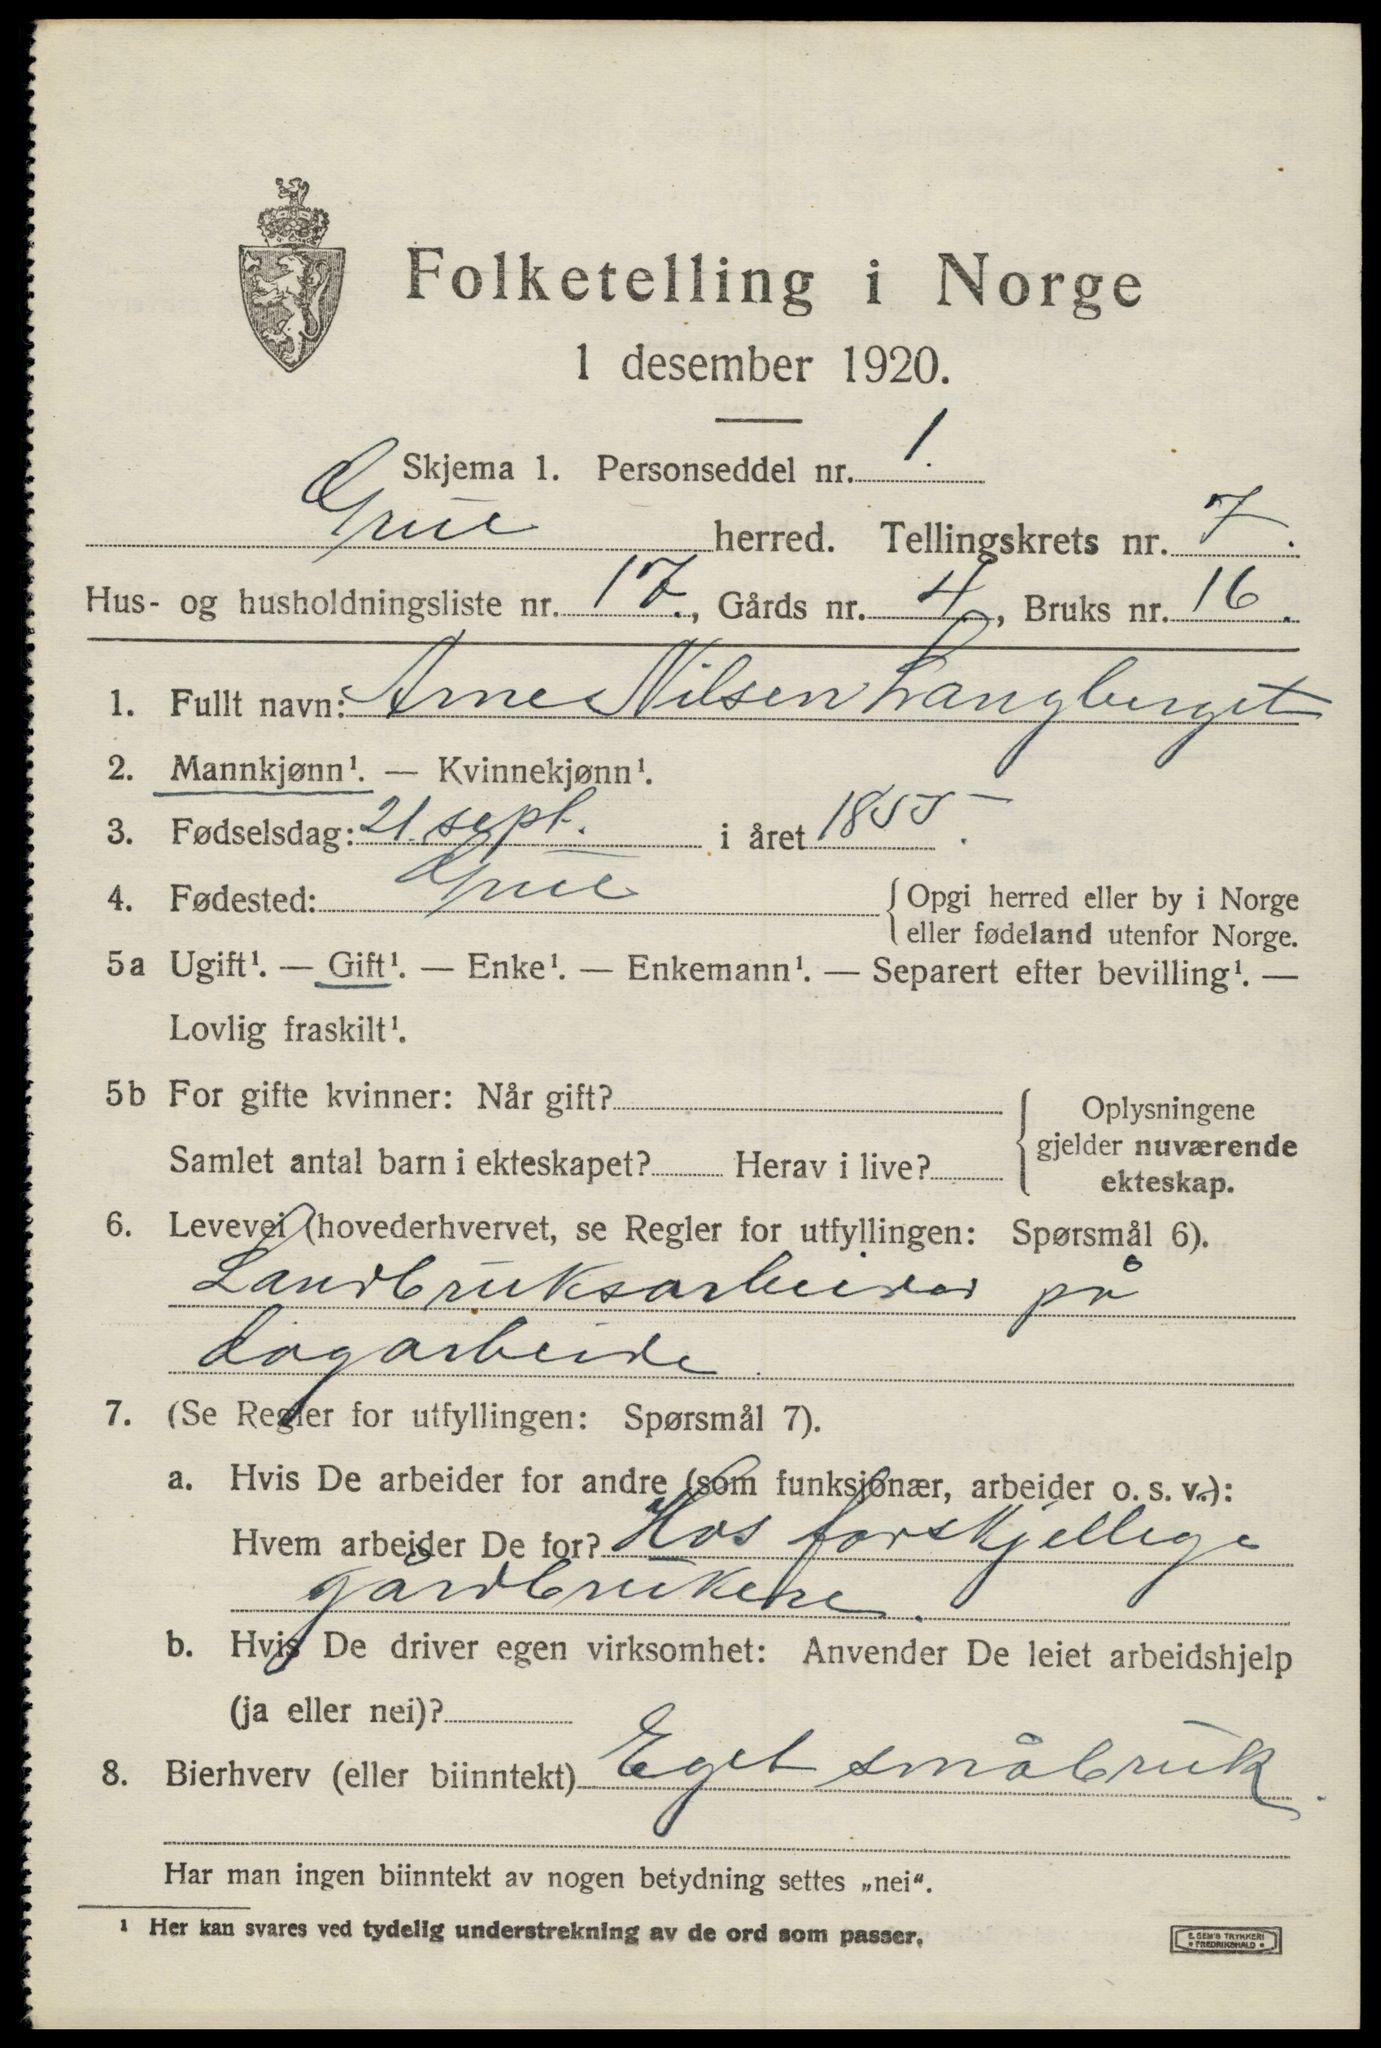 Folketelling i Norge
1 desember 1920.
Skjema 1. Personseddel nr. 1.
Grue herred. Tellingskrets nr. 7.
Hus- og husholdningsliste nr. 17., Gårds nr. 4, Bruks nr. 16.
1. Fullt navn: Arne Nilsen Langberget
2. Mannkjønn¹. — Kvinnekjønn¹.
3. Fødselsdag: 21. sept. i året 1855.
4. Fødested: Grue {Opgi herred eller by i Norge
eller fødeland utenfor Norge.
5a Ugift¹. — Gift¹. — Enke¹. — Enkemann¹. — Separert efter bevilling¹. —
Lovlig fraskilt¹.
5b For gifte kvinner: Når gift? { Oplysningene
gjelder nuværende
Samlet antal barn i ekteskapet? Herav i live?
ekteskap.
6. Levevei (hovederhvervet, se Regler for utfyllingen: Spørsmål 6).
Landbruksarbeider på
dagarbeide.
7. (Se Regler for utfyllingen: Spørsmål 7).
a. Hvis De arbeider for andre (som funksjonær, arbeider o. s. v.):
Hvem arbeider De for? Hos forskjellige
gårdbrukere.
b. Hvis De driver egen virksomhet: Anvender De leiet arbeidshjelp
(ja eller nei)?
8. Bierhverv (eller biinntekt) Eget småbruk.
Har man ingen biinntekt av nogen betydning settes „nei".
¹ Her kan svares ved tydelig understrekning av de ord som passer.
E. SEM'S TRYKKERI
• FREDRIKSHALD •